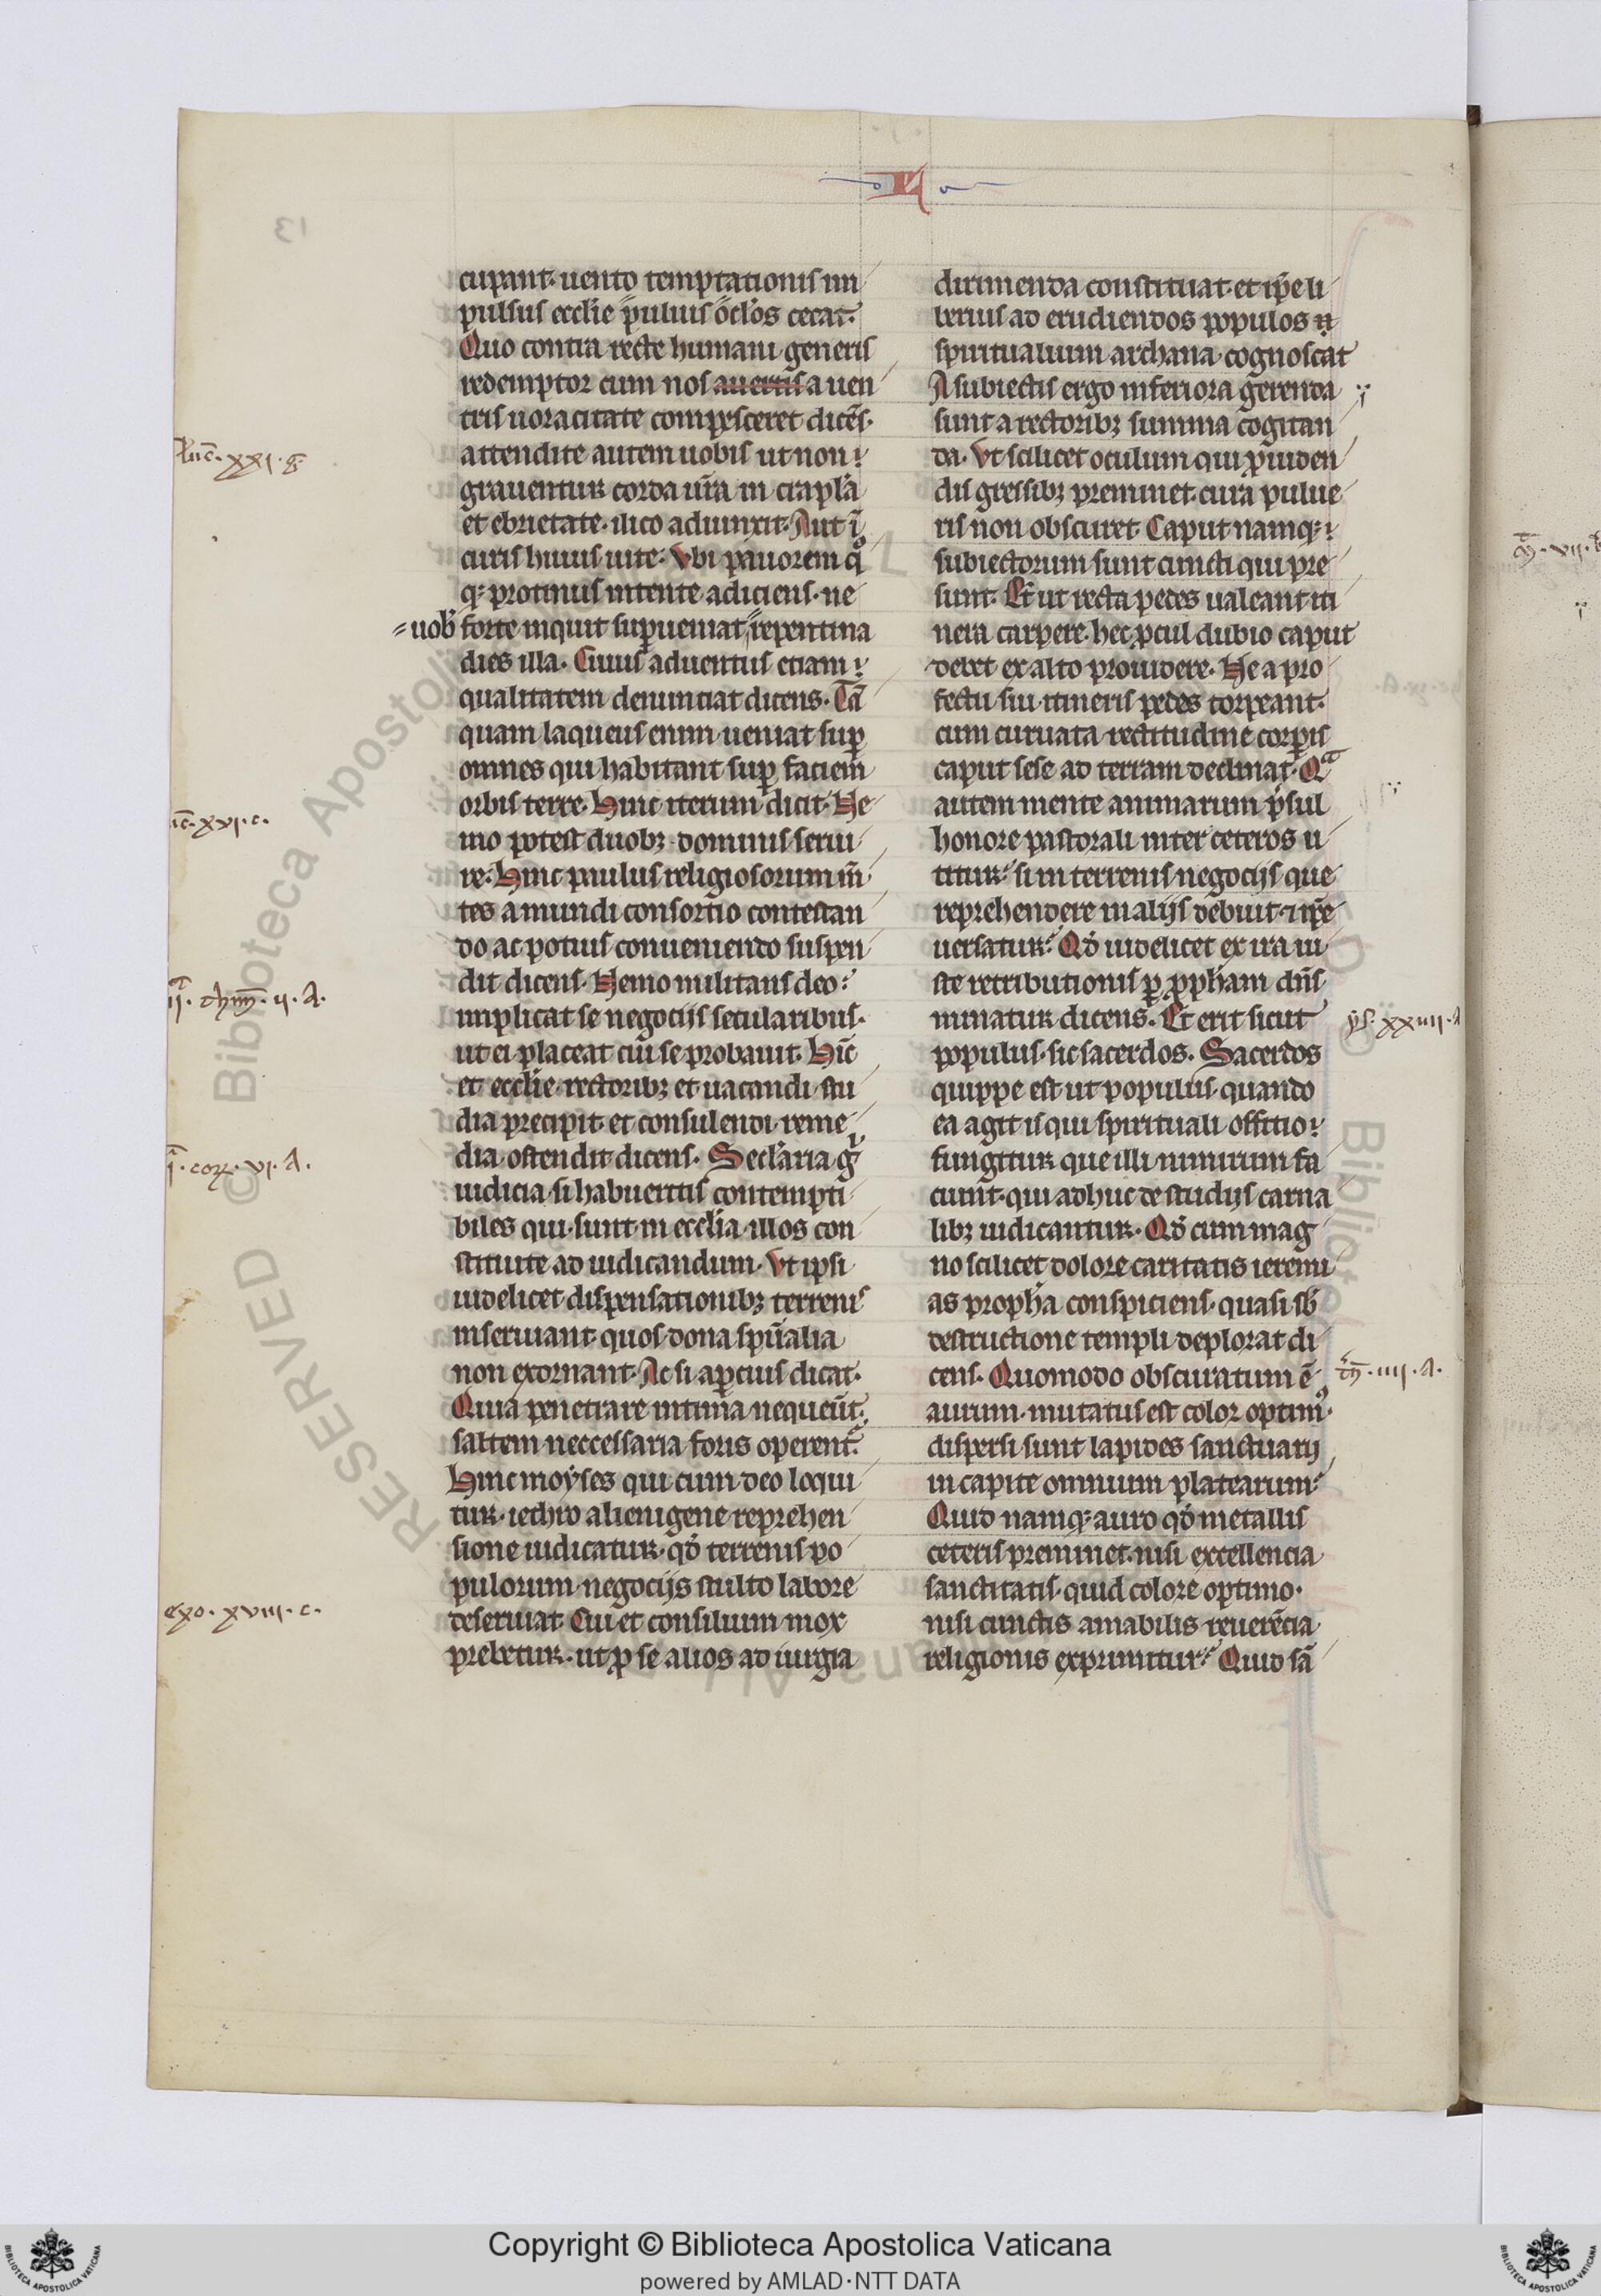 II
cupant· uento temptationis im
pulsus eccl̄ie puluis oc̄l̄os cecat·
Quo contra recte humani generis
redemptor cum nos auertis a uen
tris uoracitate compesceret dicēs·
attendite autem uobis ut non
grauentur corda ur̄a in crapl̄a
et ebrietate· ilico adiunxit· Aut ī
curis huius uite· Vbi pauorem qͦ
q; protinus intente adiciens· ne
uob forte inquit suꝑueniat repentina
dies illa· Cuius aduentus etiam
qualitatem denunciat dicens· Tā
quam laqueus enim ueniat suꝑ
omnes qui habitant suꝑ faciem
orbis terre· Hinc iterum dicit· Ne
mo potest duobꝫ dominis serui
re· Hinc paulus religiosorum m̄
tes a mundi consortio contestan
do ac potius conueniendo suspen
dit dicens· Nemo militans deo
implicat se negocijs secularibus·
ut ei placeat cui se probauit· Hīc
et eccl̄ie rectoribꝫ et uacandi stu
dia precipit et consulendi reme
dia ostendit dicens· Secl̄aria gͥ
iudicia si habueritis contempti
biles qui sunt in eccl̄ia illos con
stituite ad iudicandum· Vt ipsi
uidelicet dispensationibꝫ terrenis
inseruiant quos dona spūalia
non exornant· Ac si aꝑcius dicat·
Quia penetrare intima nequeūt
saltem neccessaria foris operent᷑
Hinc moyses qui cum deo loqui
tur· iethro alienigene reprehen
sione iudicatur· qď terrenis po
pulorum negocijs stulto labore
deseruiat Cui et consilium mox
prebetur· ut ꝓ se alios ad iurgia
dirimenda constituat· et ip̄e li
berius ad erudiendos populos
spiritualium archana cognoscat
A subiectis ergo inferiora gerenda
sunt a rectoribꝫ summa cogitan
da· Vt scilicet oculum qui ꝓuiden
dis gressibꝫ preminet cura pulue
ris non obscuret Caput namq;
subiectorum sunt cuncti qui pre
sunt· Et ut recta pedes ualeant iti
nera carpere· hec ꝓcul dubio caput
debet ex alto prouidere· Ne a pro
fectu sui itineris pedes torpeant·
cum curuata rectitudine corꝑis
caput sese ad terram declinat· Qᵃ
autem mente animarum p̄sul
honore pastorali inter ceteros u
titur si in terrenis negocijs que
reprehendere in alijs debuit ⁊ ip̄e
uersatur Qď uidelicet ex ira iu
ste retributionis ꝑ ꝓph̄am dn̄s
minatur dicens· Et erit sicut
populus· sic sacerdos· Sacerdos
quippe est ut populus· quando
ea agit is qui spirituali offitio
fungitur que illi nimirum fa
ciunt· qui adhuc de studijs carna
libꝫ iudicantur· Qď cum mag
no scilicet dolore caritatis ieremi
as proph̄a conspiciens· quasi sb̄
destructione templi deplorat di
cens· Quomodo obscuratum ē
aurum· mutatus est color optimꝰ·
dispersi sunt lapides sanctuarij
in capite omnium platearum·
Quid namq; auro qď metallis
ceteris preminet· nisi excellencia
sanctitatis· quid colore optimo·
nisi cunctis amabilis reuerēcia
religionis exprimitur Quid sā
luc̄· xxi· g·
xvi· c·
ijᵃ· thym̄· ii· A·
ī· cor̄· vi· A·
exo· xviii· c·
ys· xxiiii· A
tr̄· iiii· A·
13
© Biblioteca Apostolica
RESERVED
Copyright © Biblioteca Apostolica Vaticana
powered by AMLAD·NTT DATA
BIBLIOTECA APOSTOLICA VATICANA
BIBLIOTECA APOSTOLICA VATICANA